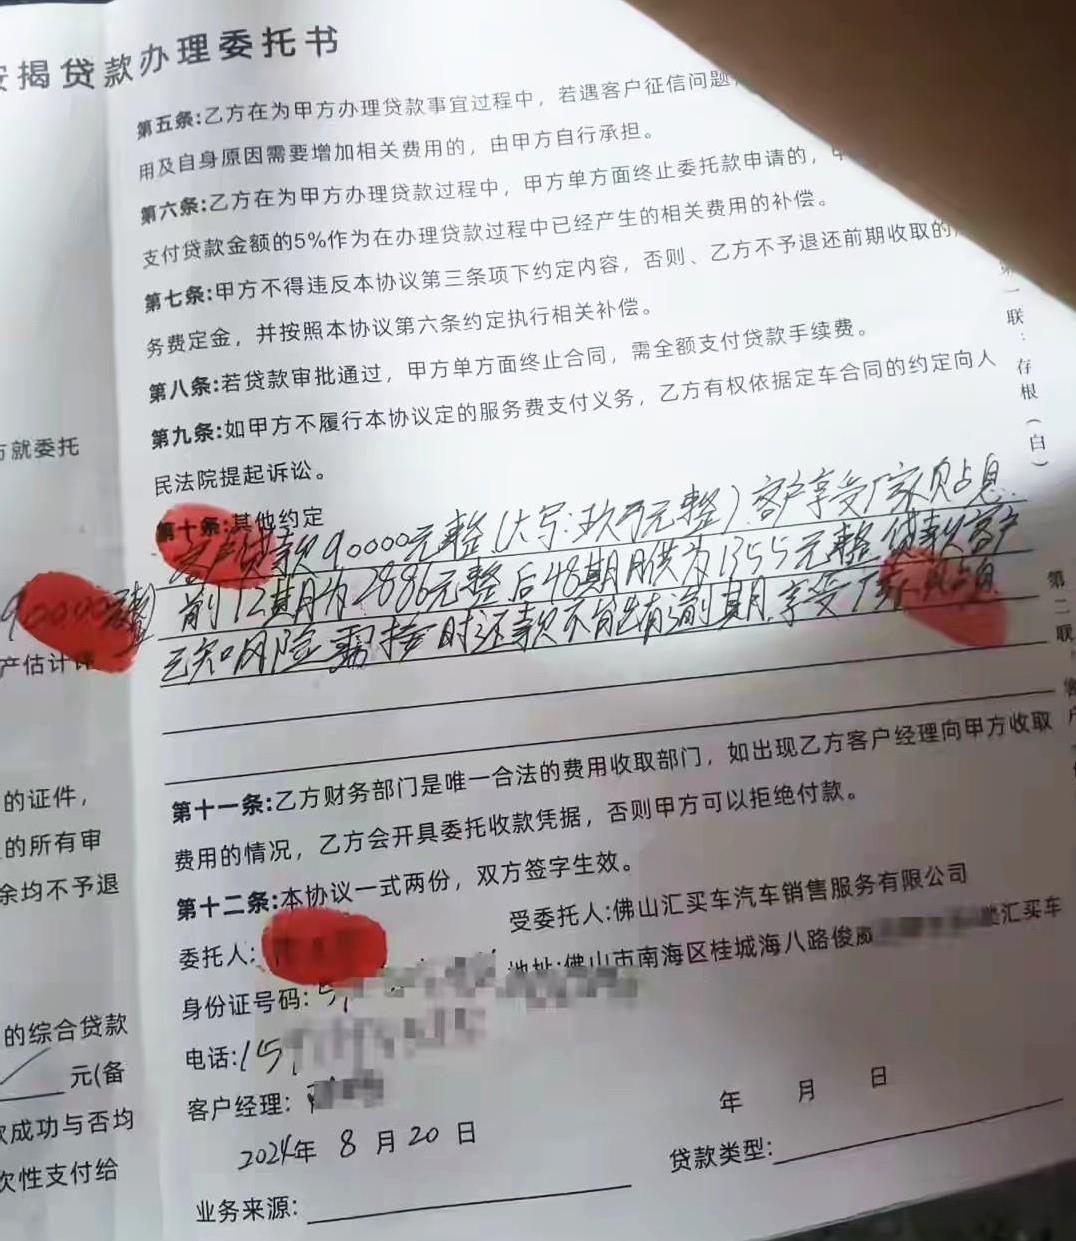 按揭贷款办理委托书
第五条:乙方在为甲方办理贷款事宜过程中，若遇客户征信问题，
用及自身原因需要增加相关费用的，由甲方自行承担。
第六条:乙方在为甲方办理贷款过程中，甲方单方面终止委托款申请的，
支付贷款金额的5%作为在办理贷款过程中已经产生的相关费用的补偿。
第七条:甲方不得违反本协议第三条项下约定内容，否则、乙方不予退还前期收取的
务费定金，并按照本协议第六条约定执行相关补偿。
第八条:若贷款审批通过，甲方单方面终止合同，需全额支付贷款手续费。
第九条:如甲方不履行本协议定的服务费支付义务，乙方有权依据定车合同的约定向人
民法院提起诉讼。
第十条:其他约定
客户贷款90000元整(大写:玖万元整)客户享受厂家贴息
前12期月为2886元整后48期月供为1355元整贷款客户
已知风险需按时还款不能有逾期.享受厂家贴息
第十一条:乙方财务部门是唯一合法的费用收取部门，如出现乙方客户经理向甲方收取
费用的情况，乙方会开具委托收款凭据，否则甲方可以拒绝付款。
第十二条:本协议一式两份，双方签字生效。
委托人:
受委托人:佛山汇买车汽车销售服务有限公司
地址:佛山市南海区桂城海八路俊
汇买车
身份证号码:51
电话:15
客户经理:
2024年 8月20日
年 月 日
业务来源:
贷款类型:
第一联:存根(白)
第二联,客户
方就委托
90000元整)
产估计评
的证件，
的所有审
余均不予退
的综合贷款
元(备
款成功与否均
次性支付给